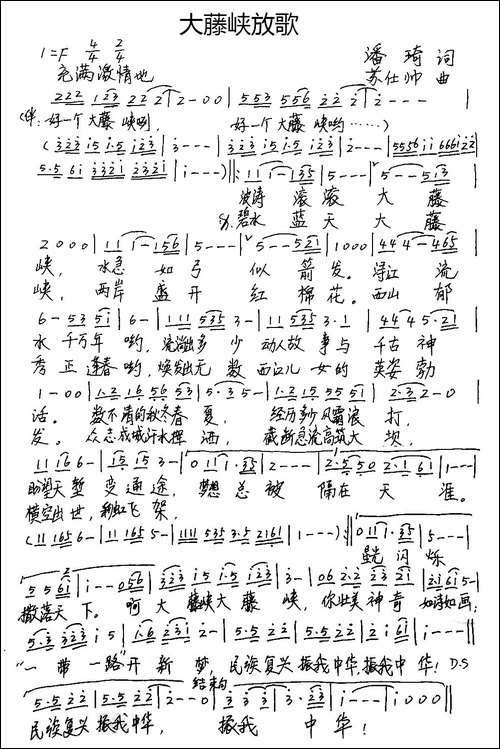 大藤峡放歌
1=F 4/4 2/4
潘琦 词
充满激情地
苏仕帅 曲
222 123 22 2 | 2-00 | 553 556 2 2 2 | 2---- |
(伴:好一个大藤峡咧, 好一个大藤峡哟……)
(323 i5 i·5 i23 | i--- | 323 i5 i·5 i23 | 2--- | 5556 ii 666i 22 |
5·5 6i 3323 232i | i---) ‖: 11 1-35 | 5--- | 5--5 13 |
波涛滚滚大藤
𝄋.碧水蓝天大藤
2000 | 11 1-156 | 5--- | 5--521 | 1000 | 44 4-465 |
峡, 水急如弓似箭发。浔江流
峡, 两岸盛开红棉花。西山郁
6-53 51 | 6- | 111 535 3- | 11 535 3·1 | 44 4 5·21 |
水千万年哟,流淌出多少动人故事与千古神
秀正逢春哟,焕发出无数西江儿女的英姿勃
1-00 | 1·2 16 56 53 | 5·35- | 1·2 15 55 51 | 2·32-0 |
话。数不清的秋冬春夏, 经历多少风霜浪打,
发。众志成城汗水挥洒, 截断急流高筑大坝,
11 166- | 15 15 3- | 011 1·35 | 2--- | 2·550 2·161 | 1--- |
助望天堑变通途,梦想总被隔在天涯。
横空出世,彩虹飞架,
(11 165 6- | 11 165 5- | 1111 535 3·5 2161 | 1---) :‖ 011 1·35 | 5--- |
星光闪烁
5 5 61 | i--056 | 323 i5 i·5 i23 | 3- | 06 2·2 23 21 | 21 61 5- |
撒落天下。啊大藤峡大藤峡,你壮美神奇如诗如画;
5·3 323 i5 | 1·6 231 2- | 5·5 22 | 5·5 22 | 2i6 | i---‖
"一带一路"开新梦,民族复兴振我中华,振我中华! D.S
结束句
5·5 22 | 5·5 22 | 2--0 | 3 3 3 | 3·23 | i--- | i000 ‖
民族复兴振我中华, 振我中华!